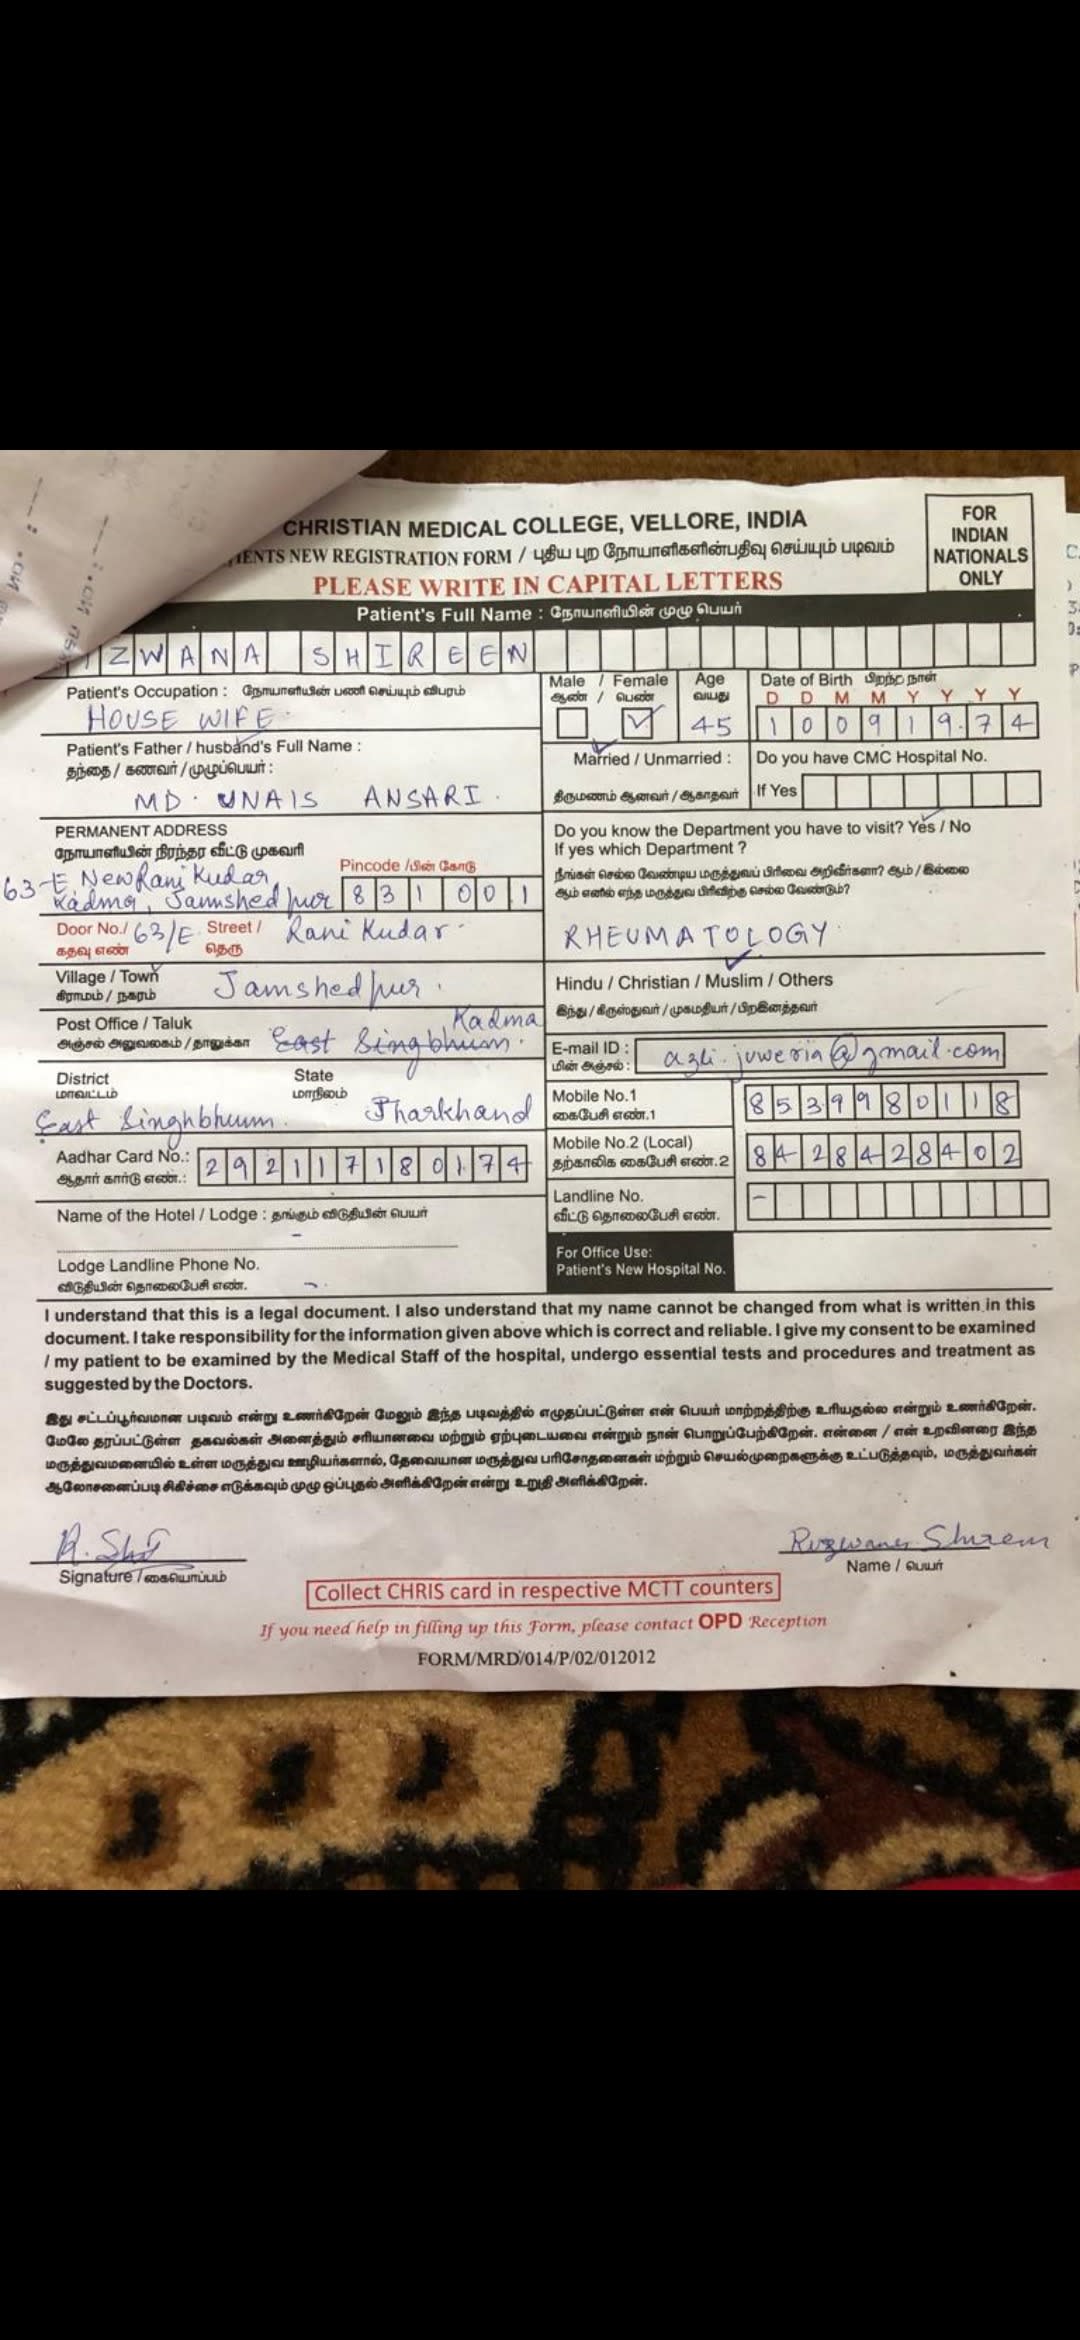 CHRISTIAN MEDICAL COLLEGE, VELLORE, INDIA
FOR INDIAN NATIONALS ONLY
NEW REGISTRATION FORM / புதிய புற நோயாளிகளின்பதிவு செய்யும் படிவம்
PLEASE WRITE IN CAPITAL LETTERS
Patient's Full Name : நோயாளியின் முழு பெயர்
IZWANA SHIREEN
Patient's Occupation : நோயாளியின் பணி செய்யும் விபரம்
HOUSE WIFE
Male / Female
ஆண் / பெண்
Age
வயது
45
Date of Birth பிறந்த நாள்
D D M M Y Y Y Y
1 0 0 9 1 9 7 4
Patient's Father / husband's Full Name :
தந்தை / கணவர் / முழுப்பெயர் :
MD. UNAIS ANSARI.
Married / Unmarried :
திருமணம் ஆனவர் / ஆகாதவர்
Do you have CMC Hospital No.
If Yes
PERMANENT ADDRESS
நோயாளியின் நிரந்தர வீட்டு முகவரி
Pincode /பின் கோடு
63-E, New Rani Kudar
Kadma, Jamshedpur 831001
Door No./ 63/E Street / Rani Kudar
கதவு எண் தெரு
Do you know the Department you have to visit? Yes / No
If yes which Department ?
நீங்கள் செல்ல வேண்டிய மருத்துவப் பிரிவை அறிவீர்களா? ஆம் / இல்லை
ஆம் எனில் எந்த மருத்துவ பிரிவிற்கு செல்ல வேண்டும்?
RHEUMATOLOGY
Village / Town
கிராமம் / நகரம்
Jamshedpur.
Hindu / Christian / Muslim / Others
இந்து / கிருஸ்துவர் / முகமதியர் / பிறஇனத்தவர்
Post Office / Taluk Kadma
அஞ்சல் அலுவலகம் / தாலுக்கா East Singbhum.
E-mail ID :
மின் அஞ்சல் :
azli.juweria@gmail.com
District State
மாவட்டம் மாநிலம்
East Singhbhum. Jharkhand
Mobile No.1
கைபேசி எண்.1
8539980118
Aadhar Card No.:
ஆதார் கார்டு எண்.:
292117180174
Mobile No.2 (Local)
தற்காலிக கைபேசி எண்.2
8428428402
Name of the Hotel / Lodge : தங்கும் விடுதியின் பெயர்
-
Landline No.
வீட்டு தொலைபேசி எண்.
-
Lodge Landline Phone No.
விடுதியின் தொலைபேசி எண்.
-.
For Office Use:
Patient's New Hospital No.
I understand that this is a legal document. I also understand that my name cannot be changed from what is written in this
document. I take responsibility for the information given above which is correct and reliable. I give my consent to be examined
/ my patient to be examined by the Medical Staff of the hospital, undergo essential tests and procedures and treatment as
suggested by the Doctors.
இது சட்டப்பூர்வமான படிவம் என்று உணர்கிறேன் மேலும் இந்த படிவத்தில் எழுதப்பட்டுள்ள என் பெயர் மாற்றத்திற்கு உரியதல்ல என்றும் உணர்கிறேன்.
மேலே தரப்பட்டுள்ள தகவல்கள் அனைத்தும் சரியானவை மற்றும் ஏற்புடையவை என்றும் நான் பொறுப்பேற்கிறேன். என்னை / என் உறவினரை இந்த
மருத்துவமனையில் உள்ள மருத்துவ ஊழியர்களால், தேவையான மருத்துவ பரிசோதனைகள் மற்றும் செயல்முறைகளுக்கு உட்படுத்தவும், மருத்துவர்கள்
ஆலோசனைப்படி சிகிச்சை எடுக்கவும் முழு ஒப்புதல் அளிக்கிறேன் என்று உறுதி அளிக்கிறேன்.
Signature / கையொப்பம்
Shireen
Name / பெயர்
Collect CHRIS card in respective MCTT counters
If you need help in filling up this Form, please contact OPD Reception
FORM/MRD/014/P/02/012012